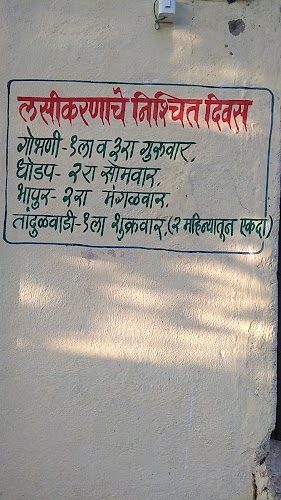 लसीकरणाचे निश्चित दिवस
गोभणी-१ला व ३रा गुरूवार.
घोडप- २रा सोमवार.
भापुर- २रा मंगळवार.
तादुळवाडी-१ला शुक्रवार.(२ महिन्यातून एकदा)